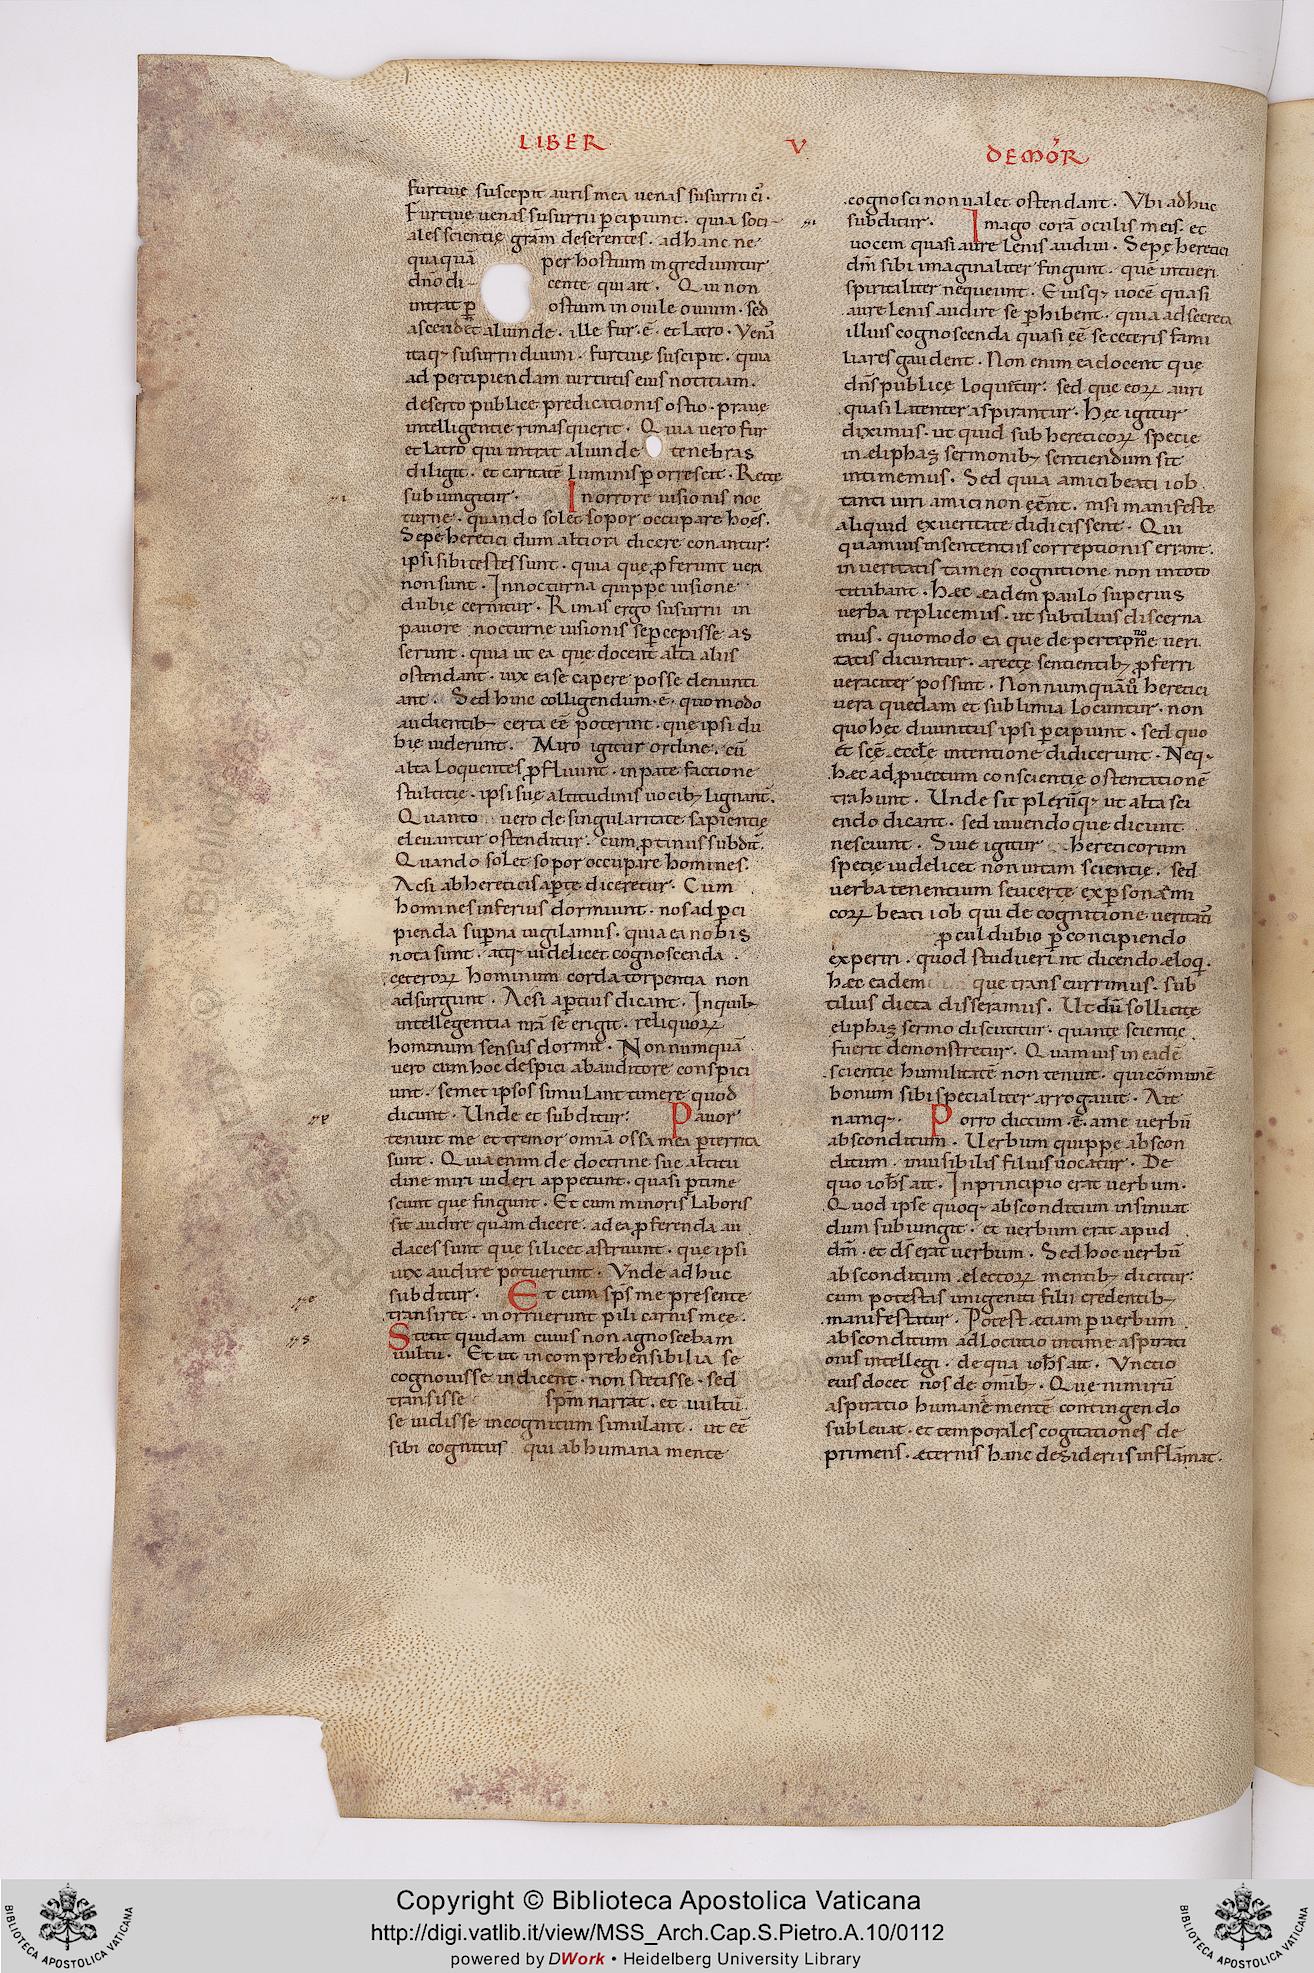 LIBER V DEMOR̃
furtiuę suscepit auris mea uenas susurrii ei᷒.
Furtiuę uenas susurrii p̲cipiunt. quia soci-
ales scientię grãm deserentes. ad hanc ne
quaquã per hostium ingrediuntur
dño di- cente qui ait. Qui non
intrat p̲ ostium in ouile ouium. sed
ascendet aliunde. ille fur .ē. et latro. Venã
itaq; susurrii diuini. furtiuę suscipit. quia
ad percipiendam uirtutis eius notitiam.
deserto publicę predicationis ostio. prauę
intelligentie rimas querit. Quia uero fur
et latro qui intrat aliunde tenebras
diligit. et caritatẽ luminis p̲orrescit. Recte
subiungitur. In orrore uisionis noc
turnę. quando solet sopor occupare hoẽs.
Sepẽ heretici dum altiora dicere conantur:
ipsi sibi testes sunt. quia que ꝓferunt uera
non sunt. In nocturna quippe uisione
dubie cernitur. Rimas ergo susurrii in
pauore nocturnę uisionis se p̲cepisse as
serunt. quia ut ea quę docent alta aliis
ostendant. uix ea se capere posse denunti
ant. Sed hinc colligendum .ē. quomodo
audientib; certa eẽ poterint. que ipsi du
bie uiderunt. Miro igitur ordine. cũ
alta loquentes ꝓfluunt. in pate factione
stultitię. ipsi sue altitudinis uocib; lignant̃.
Quanto uero de singularitate sapientię
eleuantur ostenditur. cum ꝓtinus subdit̃.
Quando solet sopor occupare homines.
Acsi ab hereticis ap̲te diceretur. Cum
homines inferius dormiunt. nos ad p̲ci
pienda sup̲na uigilamus. quia ea nobis
nota sunt. atq; uidelicet cognoscenda
ceteroꝝ hominum corda torpentia non
adsurgunt. Acsi ap̲tius dicant. In quib;
intellegentia nrã se erigit. reliquoꝝ
hominum sensus dormit. Non numquã
uero cum hoc despici ab auditore conspici
unt. semet ipsos simulant timere quod
dicunt. Unde et subditur: Pauor
tenuit me et tremor. omia ossa mea p̲territa
sunt. Quia enim de doctrine sue altitu
dine miri uideri appetunt. quasi p̲time
scunt que fingunt. Et cum minoris laboris
sit audire quam dicere. ad ea ꝓferenda au
daces sunt que silicet astruunt. que ipsi
uix audire potuerunt. Vnde adhuc
subditur. Et cum sp̄s me presente
transiret. inorruerunt pili carnis mee.
Stetit quidam cuius non agnoscebam
uultũ. Et ut incomprehensibilia se
cognouisse indicent. non stetisse. sed
transisse sp̄m narrat. et uultũ.
se uidisse incognitum simulant. ut eẽ
sibi cognitus qui ab humana mente
cognosci non ualet ostendant. Vbi adhuc
subditur. Imago corã oculis meis. et
uocem quasi aurę lenis audiui. Sepę heretici
dm̃ sibi imaginaliter fingunt. que intueri
spiritaliter nequeunt. Eiusq; uocẽ quasi
aure lenis audire se p̲hibent. quia ad secreta
illius cognoscenda quasi eẽ se ceteris fami
liares gaudent. Non enim ea docent que
dñs publicę loquitur: sed que eoꝝ auri
quasi latenter aspirantur. Hęc igitur
diximus. ut quid sub hereticoꝝ specie
in eliphaz sermonib; sentiendum sit
intimemus. Sed quia amici beati iob.
tanti uiri amici non eẽnt. nisi manifeste
aliquid ex ueritate didicissent. Qui
quamuis in sententiis correptionis errant.
in ueritatis tamen cognitione non in toto
titubant. Hęc eadem paulo superius
uerba replicemus. ut subtilius discerna
mus. quomodo ea que de perceptñe ueri
tatis dicuntur. a recte sentientib; ꝓferri
ueraciter possint. Non numquã ũo heretici
uera quedam et sublimia locuntur. non
quo hęc diuinitus ipsi p̲cipiunt. sed quo
ex scẽ eccłe intentione didicerunt. Neq;
hæc ad ꝓuectum conscientię. ostentationẽ
trahunt. Unde fit plerũq; ut alta sci
endo dicant. sed uiuendo que dicunt
nesciunt. Siue igitur hereticorum
specie uidelicet non uitam scientię. sed
uerba tenentium seu certe ex p̲sona ami
coꝝ beati iob qui de cognitione ueritatis
ꝓcul dubio p̲concipiendo
experiri. quod studuerint dicendo eloq.
hæc eadem que transcurrimus. sub
tilius dicta disseramus. Ut dũ sollicitę
eliphaz sermo discutitur. quantę scientię
fuerit demonstretur. Quamuis in eadẽ
scientię humilitatẽ non tenuit. qui cõmunẽ
bonum sibi specialiter arrogauit. Ait
namq;. Porro dictum .ē. a me uerbũ
absconditum. Uerbum quippe abscon
ditum. inuisibilis filius uocatur. De
quo ioh̄s ait. In principio erat uerbum.
Quod ipse quoq; absconditum insinuat
dum subiungit. et uerbum erat apud
dm̃. et dš erat uerbum. Sed hoc uerbũ
absconditum electoꝝ mentib; dicitur:
cum potestas unigeniti filii credentib;
manifestatur. Potest etiam p̲ uerbum
absconditum adlocutio intimę aspirati
onis intellegi. de qua ioh̄s ait. Vnctio
eius docet nos de omĩb;. Que nimirũ
aspiratio humanẽ mentẽ contingendo
subleuat. et temporales cogitationes de
primens. æternis hanc desideriis inflãmat.
Copyright © Biblioteca Apostolica Vaticana
http://digi.vatlib.it/view/MSS_Arch.Cap.S.Pietro.A.10/0112
powered by DWork • Heidelberg University Library
BIBLIOTECA APOSTOLICA VATICANA
BIBLIOTECA APOSTOLICA VATICANA